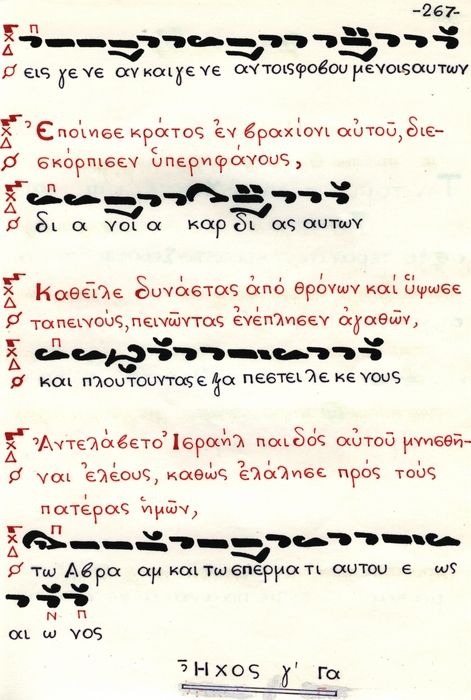 -267-
Π
εις γε νε αν και γε νε αν τοις φοβου με νοις αυτων
Ἐποίησε κράτος ἐν βραχίονι αὐτοῦ, διε-
σκόρπισεν ὑπερηφάνους,
Π
δι α νοι α καρ δι ας αυτων
Καθεῖλε δυνάστας ἀπό θρόνων καί ὕψωσε
ταπεινούς, πεινῶντας ἐνέπλησεν ἀγαθῶν,
Π
και πλουτουντας ε ξα πεστει λε κε νους
Ἀντελάβετο Ἰσραήλ παιδός αὐτοῦ μνησθῆ-
ναι ἐλέους, καθώς ἐλάλησε πρός τούς
πατέρας ἡμῶν,
Π
τω Αβρα αμ και τω σπερμα τι αυτου ε ως
Ν Π
αι ω νος
Ἦχος γ' Γα